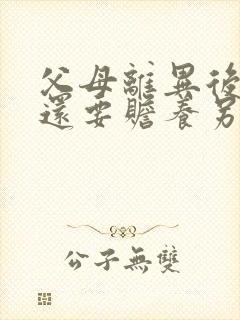 父母離異後
還要贍養另
公子無雙